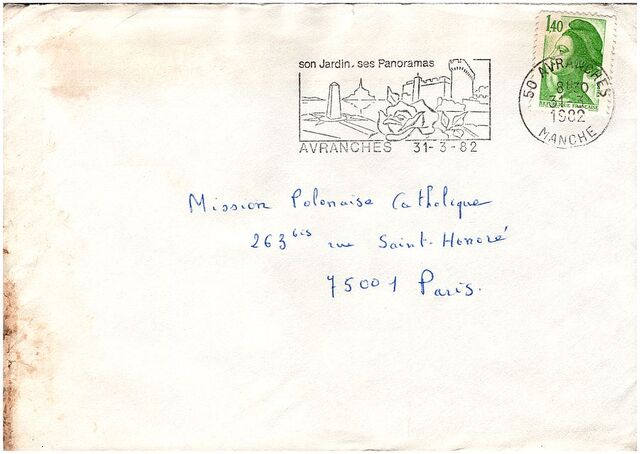 son Jardin, ses Panoramas
AVRANCHES 31-3-82
1,40
REPUBLIQUE FRANÇAISE
50 AVRANCHES
8H30
1982
MANCHE
Mission Polonaise Catholique
263 bis rue Saint-Honoré
75001 Paris.